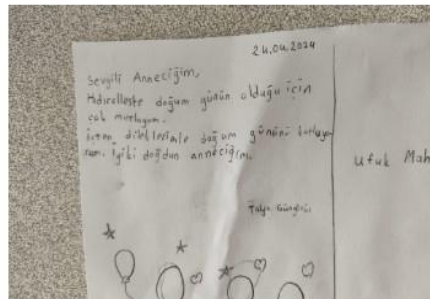 24.04.2024
Sevgili Anneciğim,
Hıdırelleste doğum günün olduğu için
çok mutluyum.
İçten dileklerimle doğum gününü kutluyo-
rum. İyiki doğdun anneciğim.
Ufuk Mah